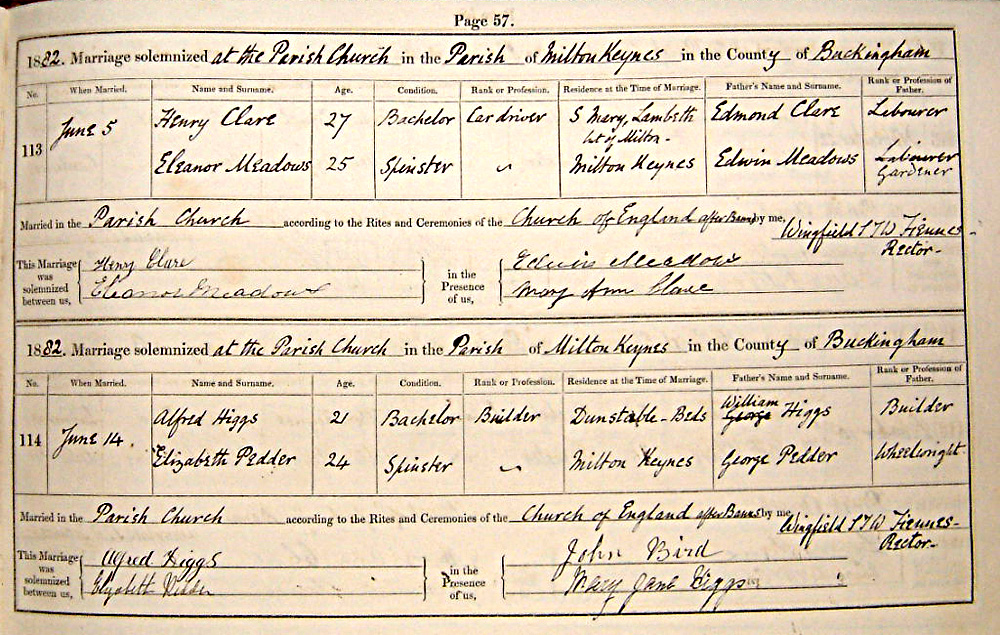 Page 57.
1882. Marriage solemnized at the Parish Church in the Parish of Milton Keynes in the County of Buckingham
No. When Married. Name and Surname. Age. Condition. Rank or Profession. Residence at the Time of Marriage. Father's Name and Surname. Rank or Profession of Father.
113 June 5 Henry Clare 27 Bachelor Car driver S Mary, Lambeth Edmond Clare Labourer
of Milton
Eleanor Meadows 25 Spinster Milton Keynes Edwin Meadows Labourer
Gardener
Married in the Parish Church according to the Rites and Ceremonies of the Church of England after Banns by me,
Wingfield S T W Fiennes
Rector
This Marriage was solemnized between us, Henry Clare in the Presence of us, Edwin Meadows
Eleanor Meadows Mary Ann Clare
1882. Marriage solemnized at the Parish Church in the Parish of Milton Keynes in the County of Buckingham
No. When Married. Name and Surname. Age. Condition. Rank or Profession. Residence at the Time of Marriage. Father's Name and Surname. Rank or Profession of Father.
William
114 June 14. Alfred Higgs 21 Bachelor Builder Dunstable - Beds George Higgs Builder
Elizabeth Pedder 24 Spinster Milton Keynes George Pedder Wheelwright
Married in the Parish Church according to the Rites and Ceremonies of the Church of England after Banns by me,
Wingfield S T W Fiennes
Rector
This Marriage was solemnized between us, Alfred Higgs in the Presence of us, John Bird
Elizabeth Pedder Mary Jane Higgs